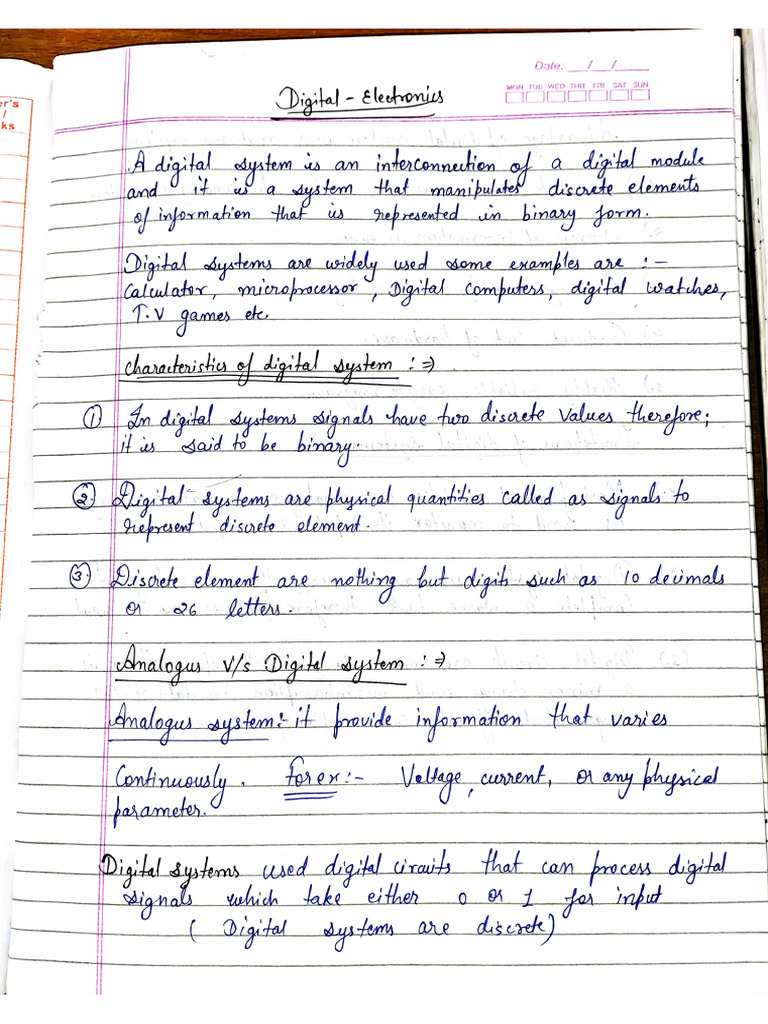 er's
/
ks
Date: __/__/____
MON TUE WED THR FRI SAT SUN
Digital - Electronics
A digital system is an interconnection of a digital module
and it is a system that manipulates discrete elements
of information that is represented in binary form.
Digital systems are widely used some examples are :-
Calculator, microprocessor, Digital computers, digital watches,
T.V games etc.
Characteristics of digital system :⇒
① In digital systems signals have two discrete values therefore;
it is said to be binary.
② Digital systems are physical quantities called as signals to
represent discrete element.
③ Discrete element are nothing but digits such as 10 decimals
or 26 letters.
Analogus V/s Digital system :⇒
Analogus system:- it provide information that varies
Continuously. For ex:- Voltage, current, or any physical
parameter.
Digital systems used digital circuits that can process digital
signals which take either 0 or 1 for input
( Digital systems are discrete)